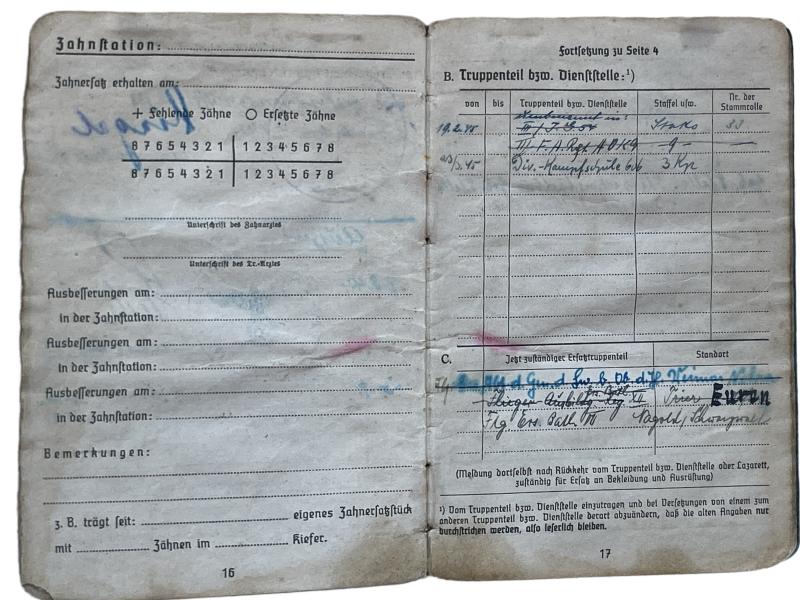 Zahnstation:
Zahnersatz erhalten am:
+ Fehlende Zähne ○ Ersetzte Zähne
8 7 6 5 4 3 2 1 | 1 2 3 4 5 6 7 8
8 7 6 5 4 3 2 1 | 1 2 3 4 5 6 7 8
Unterschrift des Zahnarztes
Unterschrift des Tr.-Arztes
Ausbesserungen am:
in der Zahnstation:
Ausbesserungen am:
in der Zahnstation:
Ausbesserungen am:
in der Zahnstation:
Bemerkungen:
z. B. trägt seit: eigenes Zahnersatzstück
mit Zähnen im Kiefer.
16
Fortsetzung zu Seite 4
B. Truppenteil bzw. Dienststelle:¹)
von bis Truppenteil bzw. Dienststelle Staffel usw. Nr. der Stammrolle
19.2.45 III / 33
III F.A.Rgt. 9
Div.-Kampfschule 3 Kp
C. Jetzt zuständiger Ersatztruppenteil Standort
d. Gen. d. Lw. b. Ob. d. H. Weimar
Flieger-Ausbildg. Reg. XII Trier Euren
Flg Ers. Batl. Nagold/Schwarzwald
(Meldung dortselbst nach Rückkehr vom Truppenteil bzw. Dienststelle oder Lazarett,
zuständig für Ersatz an Bekleidung und Ausrüstung)
¹) Vom Truppenteil bzw. Dienststelle einzutragen und bei Versetzungen von einem zum
anderen Truppenteil bzw. Dienststelle derart abzuändern, daß die alten Angaben nur
durchstrichen werden, also leserlich bleiben.
17